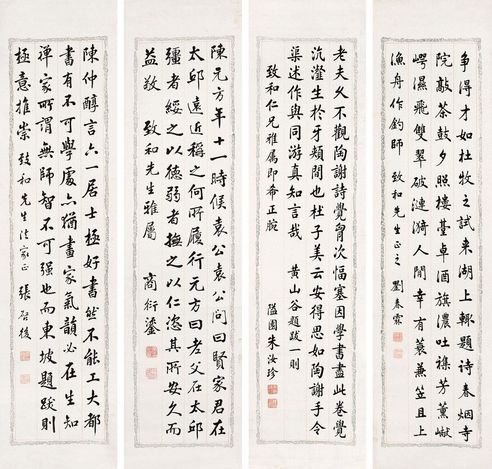 爭得才如杜牧之試来湖上輒題詩春烟寺
院敲茶鼓夕照樓臺卓酒旗濃吐襍芳薰巘
崿濕飛雙翠破漣漪人閒幸有蓑兼笠且上
漁舟作釣師 致和先生正之 劉春霖
老夫久不觀陶謝詩覺胷次愊塞因學書盡此卷覺
沆瀣生於牙頰間也杜子美云安得思如陶謝手令
渠述作與同游真知言哉 黄山谷題跋一則
致和仁兄雅屬即希正腕 隘園朱汝珍
陳元方年十一時候袁公袁公問曰賢家君在
太邱遠近稱之何所履行元方曰老父在太邱
彊者綏之以德弱者撫之以仁恣其所安久而
益敬 致和先生雅屬 商衍鎏
陳仲醇言六一居士極好書然不能工大都
書有不可學處亦猶畫家氣韻必在生知
禅家所謂無師智不可强也而東坡題跋則
極意推崇 致和先生法家正 張啓後